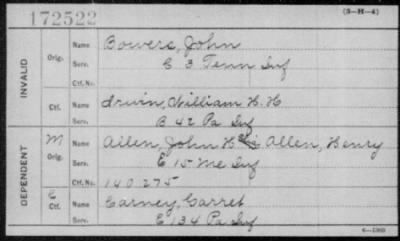 172522
(3-H-4)
INVALID
Orig. Name Bowers, John
Serv. E 3 Tenn Inf
Ctf. No.
Ctf. Name Irwin, William H. H
Serv. B 42 Pa Inf
DEPENDENT
M Orig. Name Allen, John H Allen, Henry
Serv. E 15 Me Inf
Ctf. No. 140.275
C Ctf. Name Carney, Garret
Serv. E 134 Pa Inf